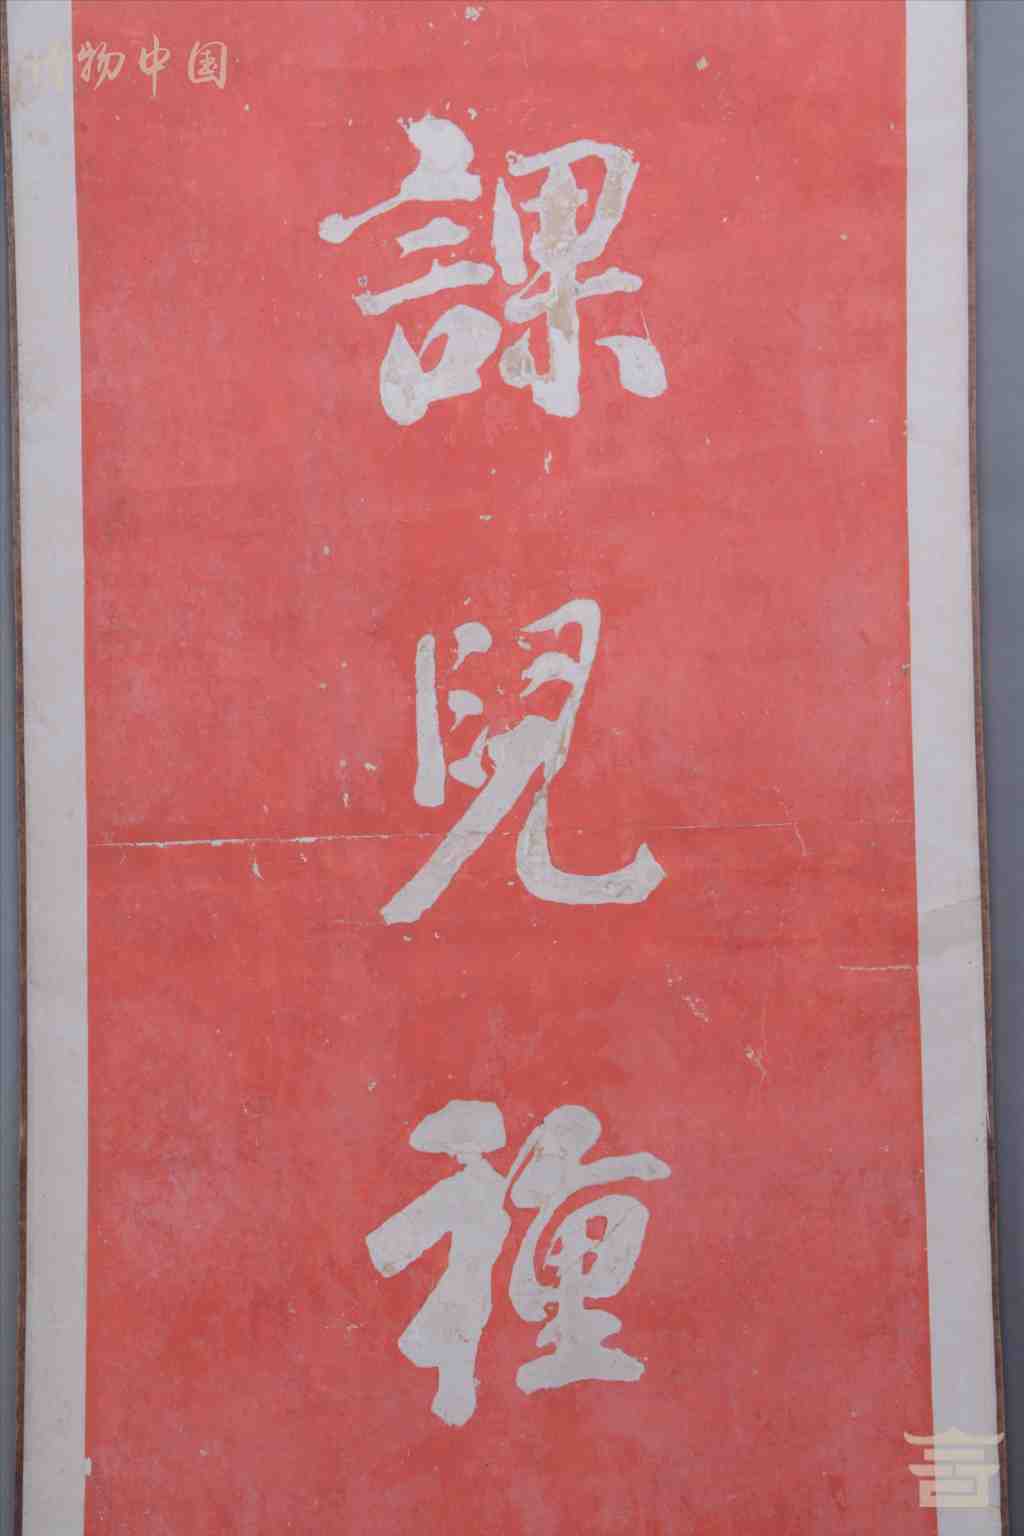 博物中国
課
兒
種